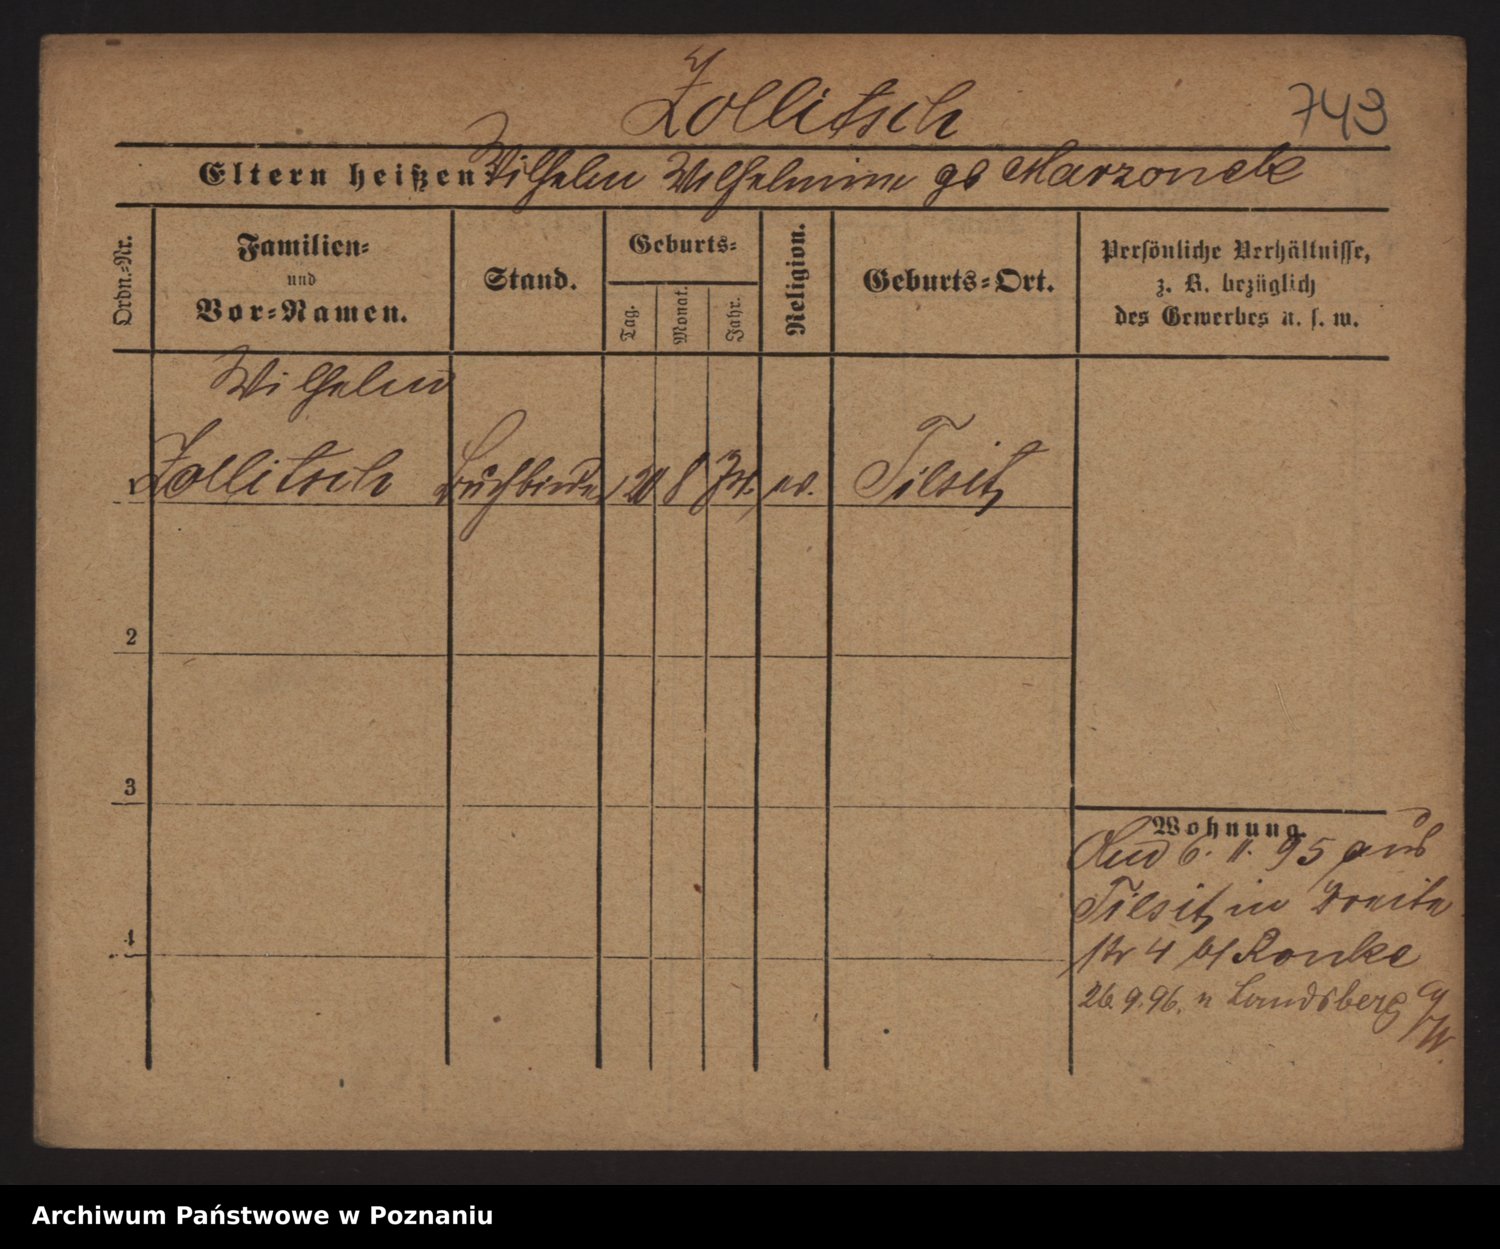 Zollitsch
743
Eltern heißen: Wilhelm Wilhelmine gb Marzonek
Ordn.-Nr.
Familien-
und
Vor-Namen.
Stand.
Geburts-
Tag.
Monat.
Jahr.
Religion.
Geburts-Ort.
Persönliche Verhältnisse,
z. B. bezüglich
des Gewerbes u. s. w.
Wilhelm
Zollitsch Buchbinder 20 8 ev. Tilsit
2
3
4
Wohnung
6. 11. 95 aus
Tilsit in Breite
str 4 b/ Ronke
26.9.96. n Landsberg
a/W.
Archiwum Państwowe w Poznaniu